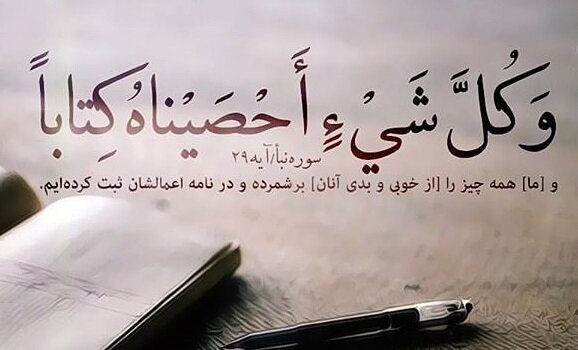 وَكُلَّ شَيْءٍ أَحْصَيْنَاهُ كِتَاباً
سوره‌نبأ/آیه۲۹
و [ما] همه چیز را [از خوبی و بدی آنان] برشمرده و در نامه اعمالشان ثبت کرده‌ایم.